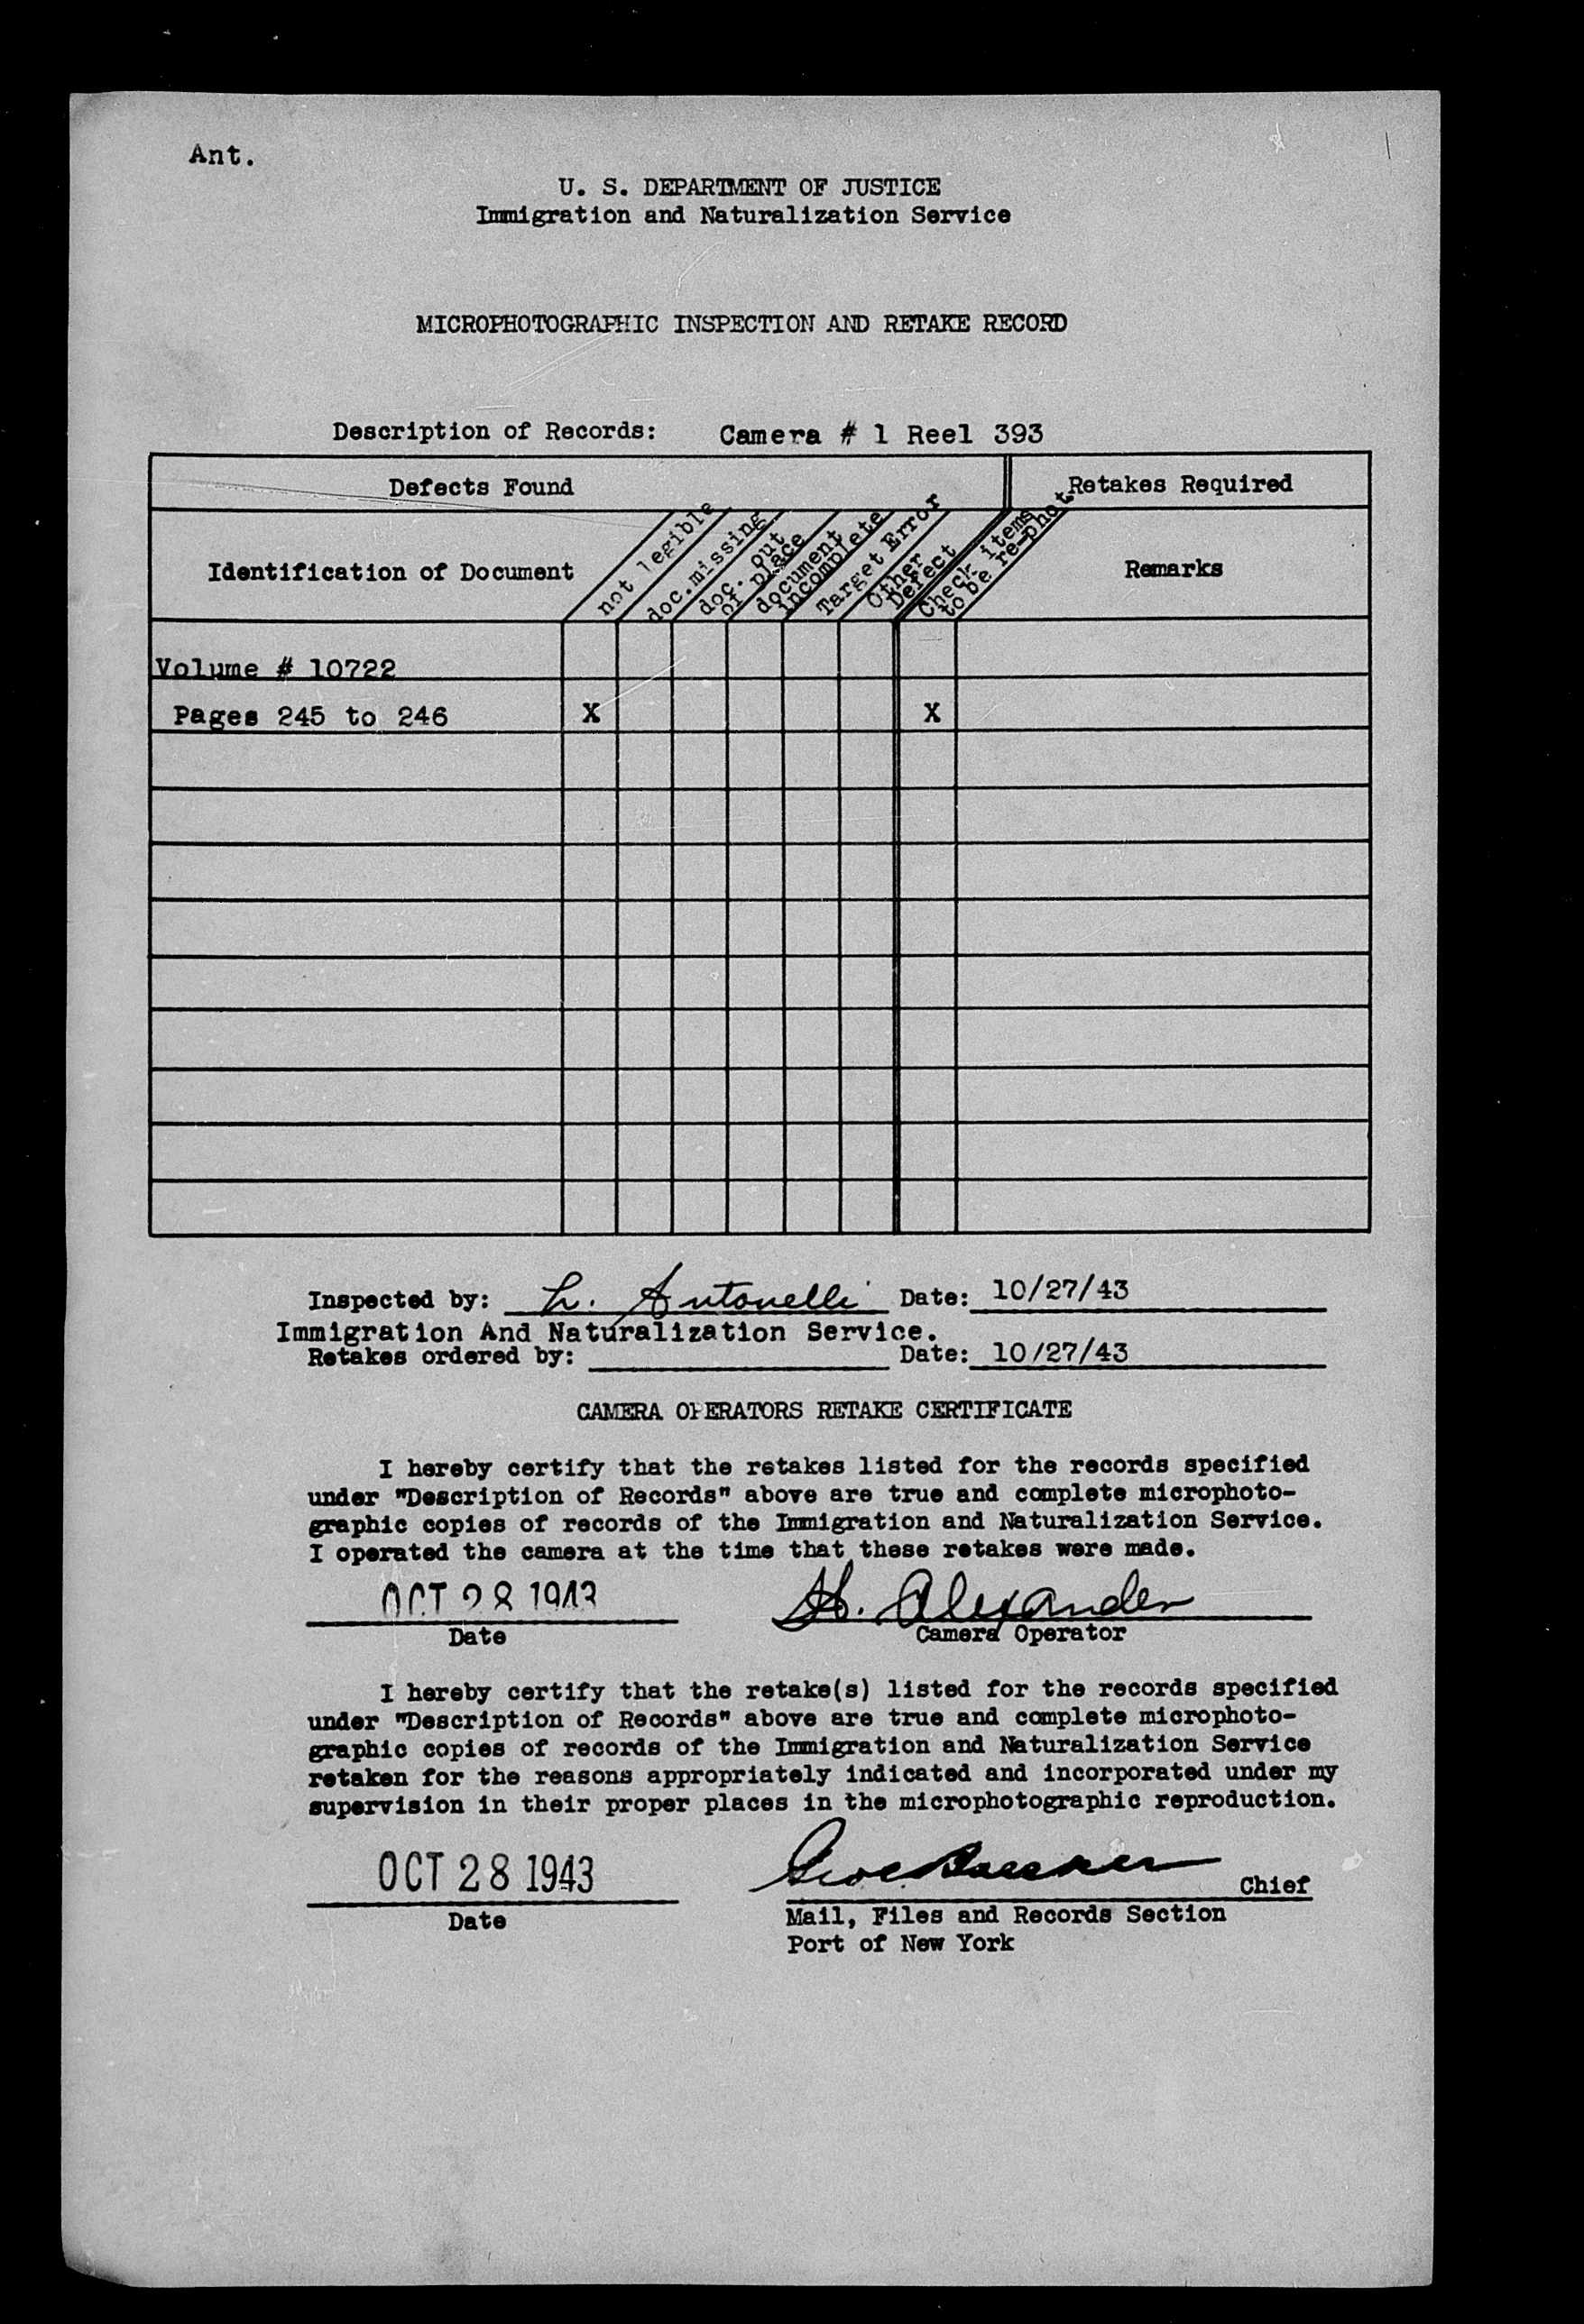 Ant.
U. S. DEPARTMENT OF JUSTICE
Immigration and Naturalization Service
MICROPHOTOGRAPHIC INSPECTION AND RETAKE RECORD
Description of Records: Camera # 1 Reel 393
Defects Found
Retakes Required
Identification of Document
not legible
doc.missing
doc. out
of place
document
incomplete
Target Error
Other
Defect
Check items
to be re-phot.
Remarks
Volume # 10722
Pages 245 to 246 X X
Inspected by: L. Antonelli Date: 10/27/43
Immigration And Naturalization Service.
Retakes ordered by: Date: 10/27/43
CAMERA OPERATORS RETAKE CERTIFICATE
I hereby certify that the retakes listed for the records specified
under "Description of Records" above are true and complete microphoto-
graphic copies of records of the Immigration and Naturalization Service.
I operated the camera at the time that these retakes were made.
OCT 28 1943 H. Alexander
Date Camera Operator
I hereby certify that the retake(s) listed for the records specified
under "Description of Records" above are true and complete microphoto-
graphic copies of records of the Immigration and Naturalization Service
retaken for the reasons appropriately indicated and incorporated under my
supervision in their proper places in the microphotographic reproduction.
OCT 28 1943 Chief
Date Mail, Files and Records Section
Port of New York